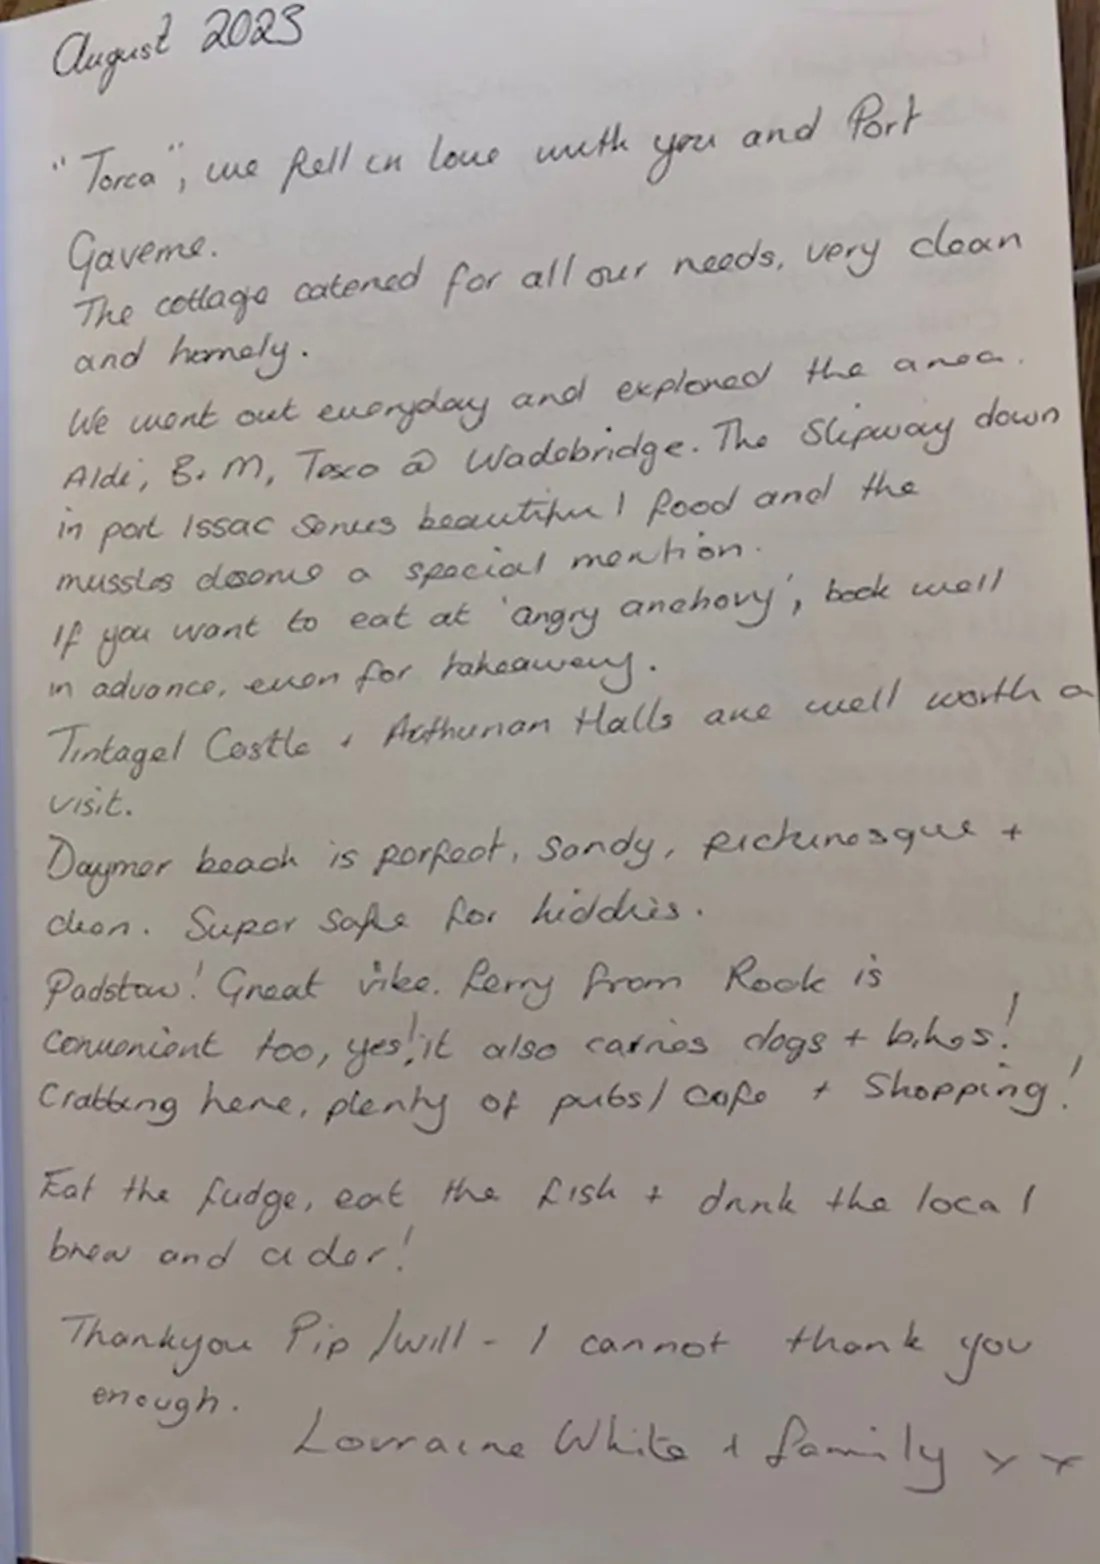 August 2023
"Torca", we fell in love with you and Port
Gaverne.
The cottage catered for all our needs, very clean
and homely.
We went out everyday and explored the area.
Aldi, B.M, Tesco @ Wadebridge. The Slipway down
in port Issac serves beautiful food and the
mussles deserve a special mention.
If you want to eat at 'angry anchovy', book well
in advance, even for takeaway.
Tintagel Castle + Arthurian Halls are well worth a
visit.
Daymer beach is perfect, Sandy, picturesque +
clean. Super safe for kiddies.
Padstow! Great vibe. ferry from Rock is
convenient too, yes! it also carries dogs + bikes!
Crabbing here, plenty of pubs/ cafe + Shopping!
Eat the fudge, eat the fish + drink the local
brew and cider!
Thankyou Pip /will - I cannot thank you
enough.
Lorraine White + family x x